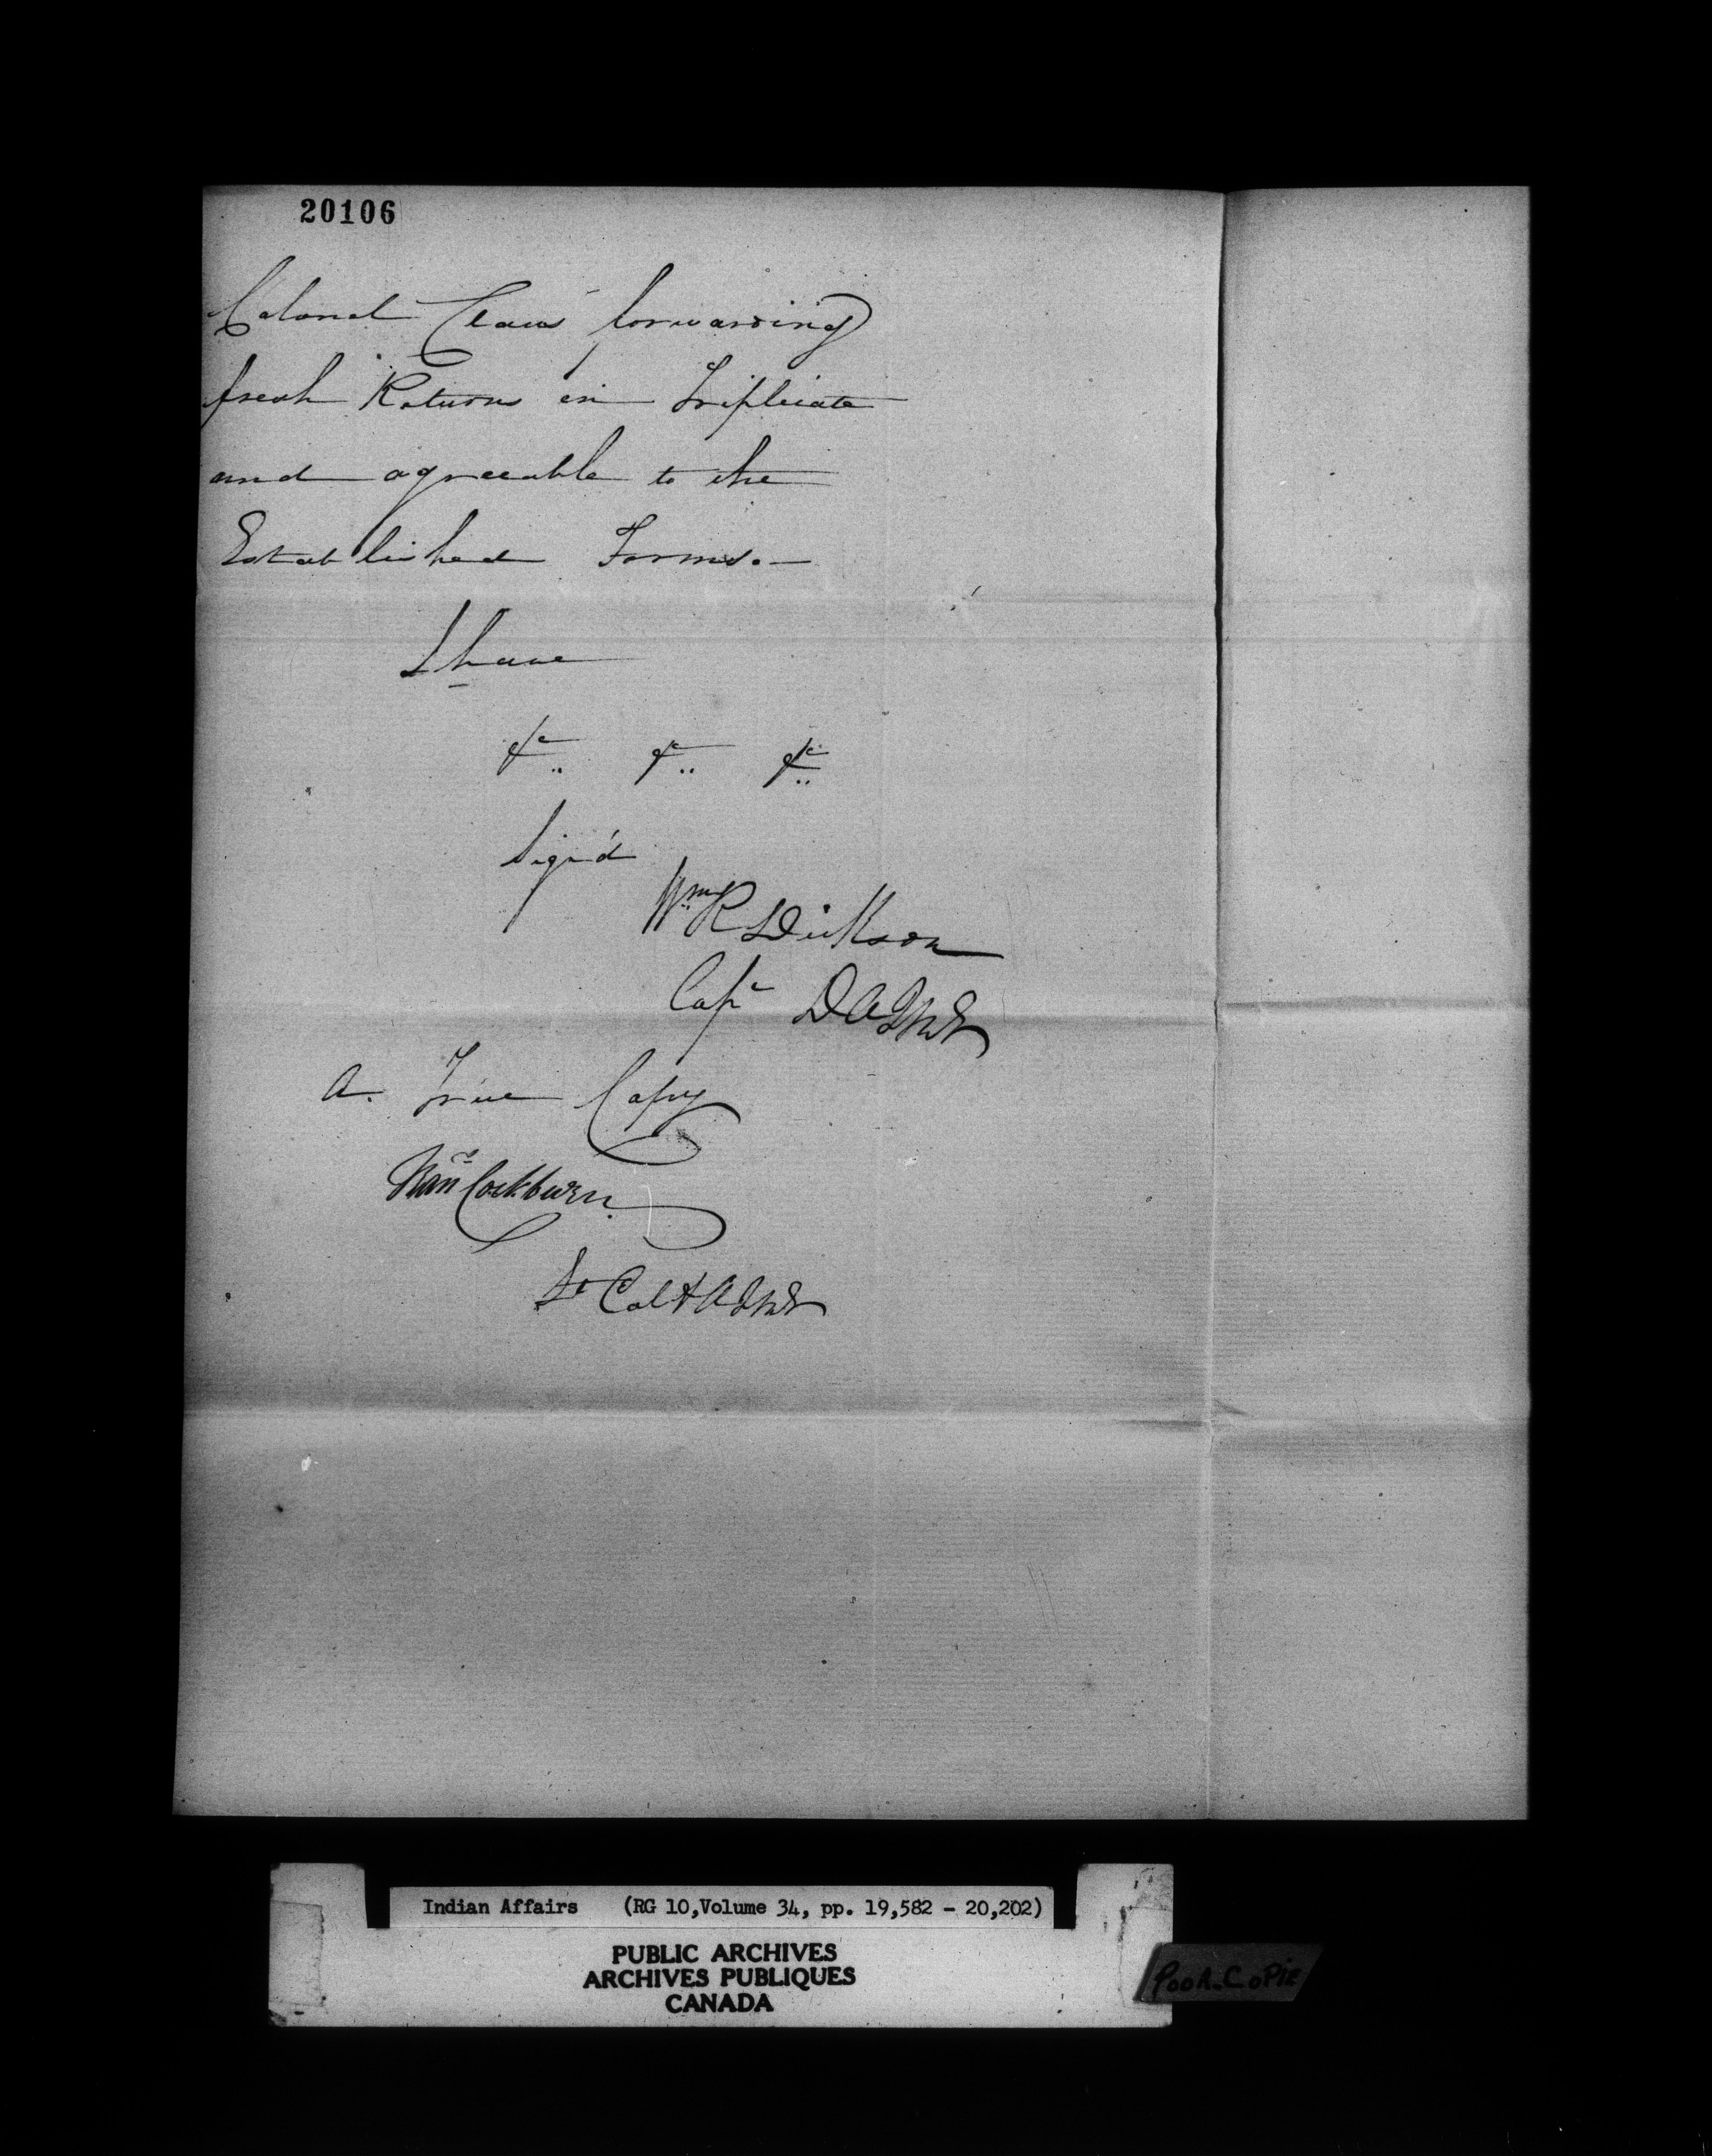 20106
Colonel Claus forwarding
fresh Returns in Triplicate
and agreeable to the
Established Forms.—
I have
&c &c &c
Sign'd
Wm R Dickson
Capt DAIndD
A. True Copy
Fran Cockburn
Lt Col
Indian Affairs (RG 10, Volume 34, pp. 19,582 - 20,202)
PUBLIC ARCHIVES
ARCHIVES PUBLIQUES
CANADA
POOR COPIE